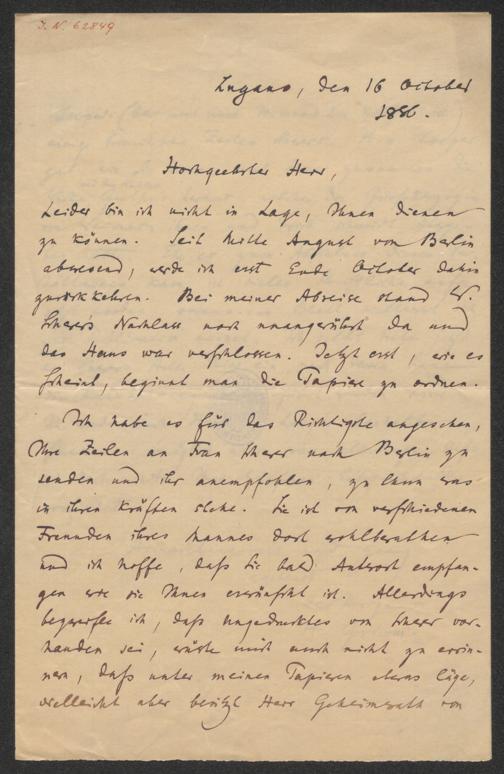 J. N. 62849
Lugano, den 16 October
1886.
Hochgeehrter Herr,
Leider bin ich nicht in Lage, Ihnen dienen
zu können. Seit Mitte August von Berlin
abwesend, werde ich erst Ende October dahin
zurückkehren. Bei meiner Abreise stand W.
Scherer's Nachlass noch unangerührt da und
das Haus war verschlossen. Jetzt erst, wie es
scheint, beginnt man die Papiere zu ordnen.
Ich habe es für das Richtigste angesehen,
Ihre Zeilen an Frau Scherer nach Berlin zu
senden und ihr anempfohlen, zu thun was
in ihren Kräften stehe. Sie ist von verschiedenen
Freunden ihres Mannes dort wohlberathen
und ich hoffe, daß Sie bald Antwort empfan-
gen wie sie Ihnen erwünscht ist. Allerdings
ich, daß Ungedrucktes von Scherer vor-
handen sei, wüste mich auch nicht zu erin-
nern, daß unter meinen Papieren etwas läge,
vielleicht aber besitzt Herr Geheimrath von